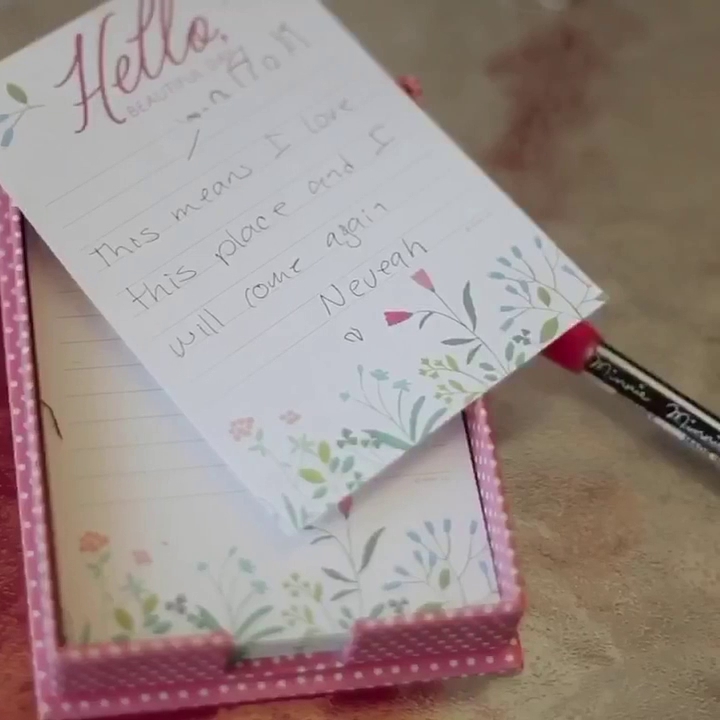 Hello,
BEAUTIFUL
this means I love
this place and I
will come again
Neveah
Minnie Minnie